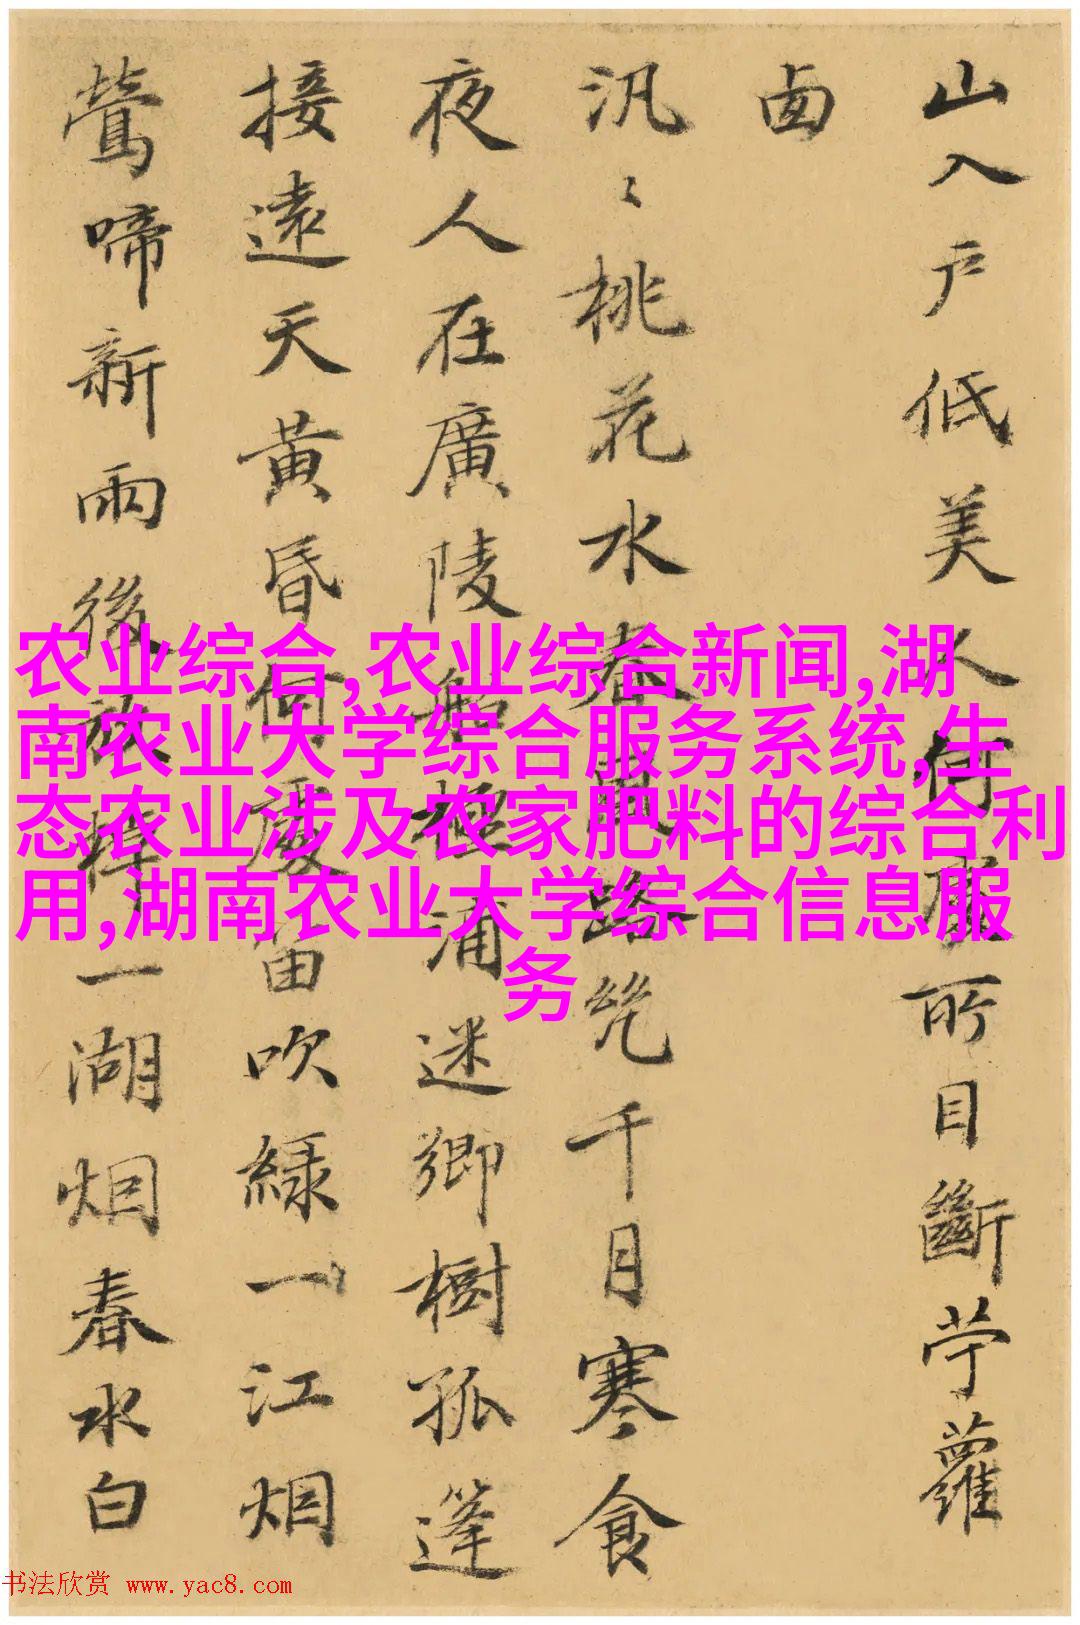 山入户低美人何處所目斷苧蘿
西
汎〻桃花水春風路绝千月寒食
夜人在廣陵船極浦迷鄉樹孤篷
接遠天黄昏何處笛吹綠一江烟
鶯啼新雨後放棹一湖烟春水白
农业综合,农业综合新闻,湖
南农业大学综合服务系统,生
态农业涉及农家肥料的综合利
用,湖南农业大学综合信息服
务
书法欣赏 www.yac8.com